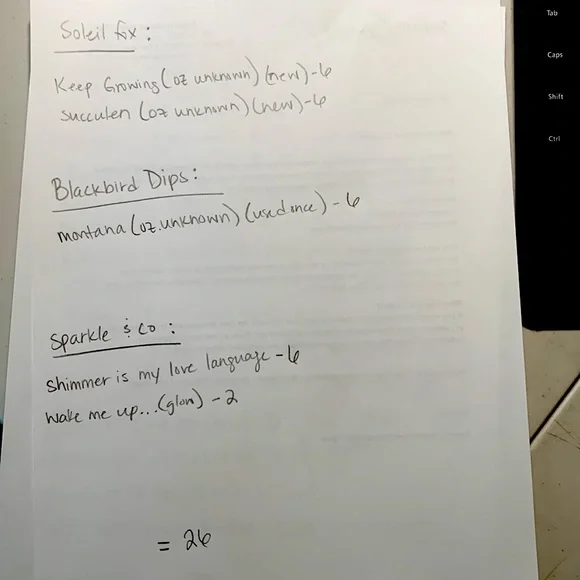 Soleil fix :
Keep Growing (oz unknown) (new) - 6
Succulen (oz unknown) (new) - 6
Blackbird Dips:
montana (oz. unknown) (used once) - 6
Sparkle & co :
Shimmer is my love language - 6
Wake me up... (glow) - 2
= 26
Tab
Caps
Shift
Ctrl